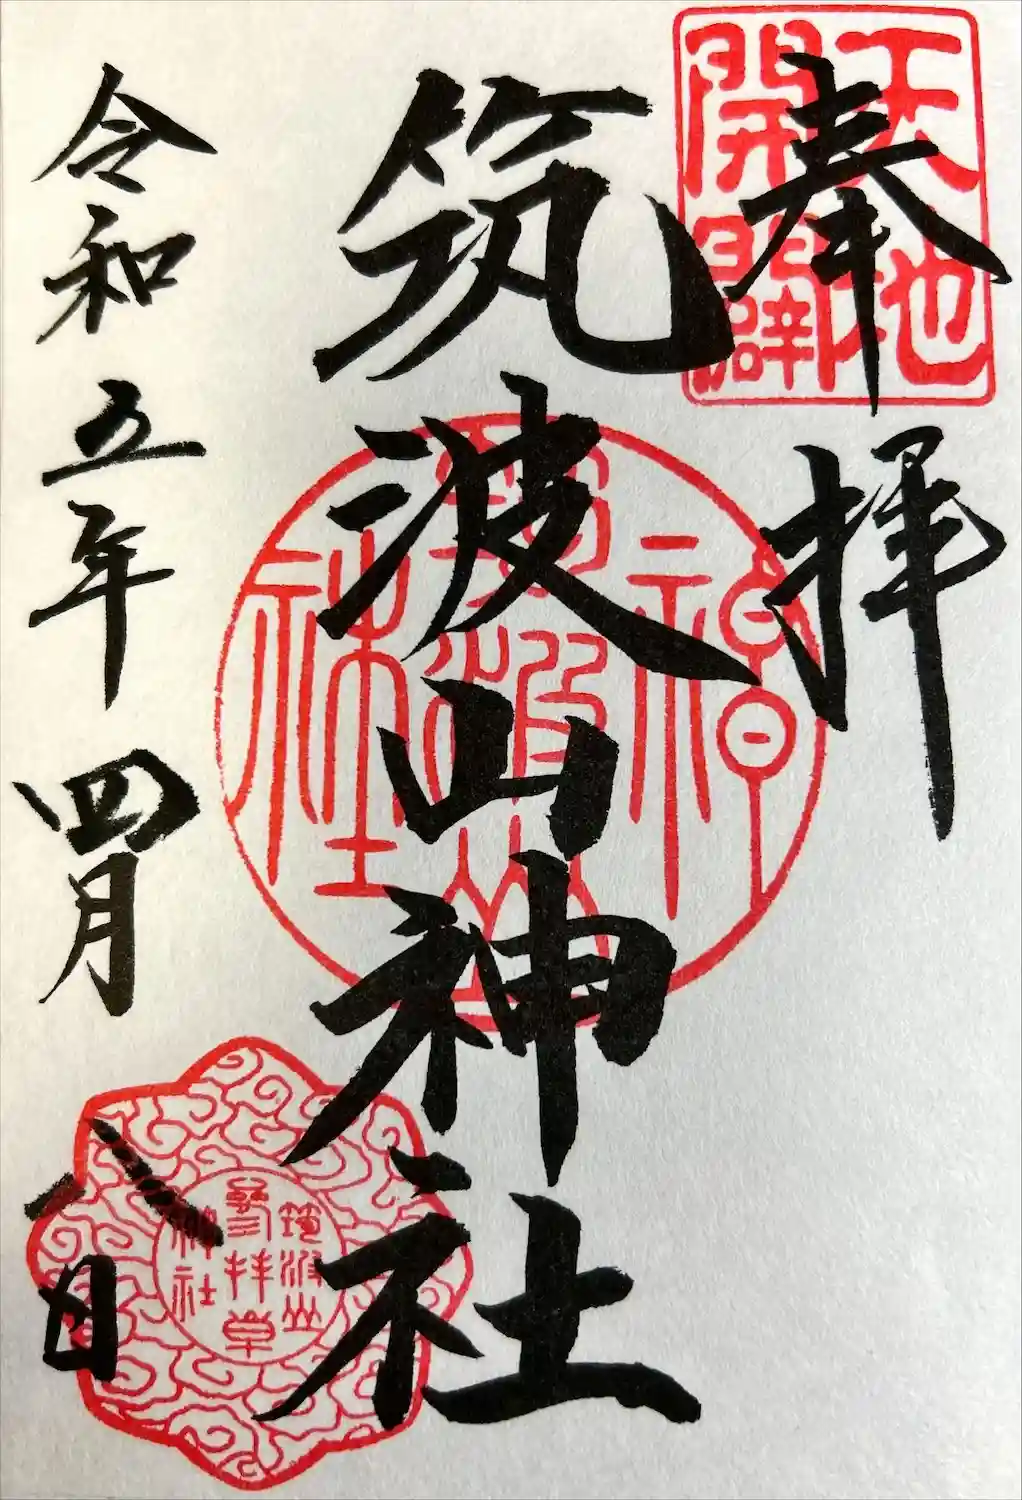 奉拝
天地
開闢
筑波山神社
筑波山
神社
令和五年四月八日
筑波山
参拝章
神社